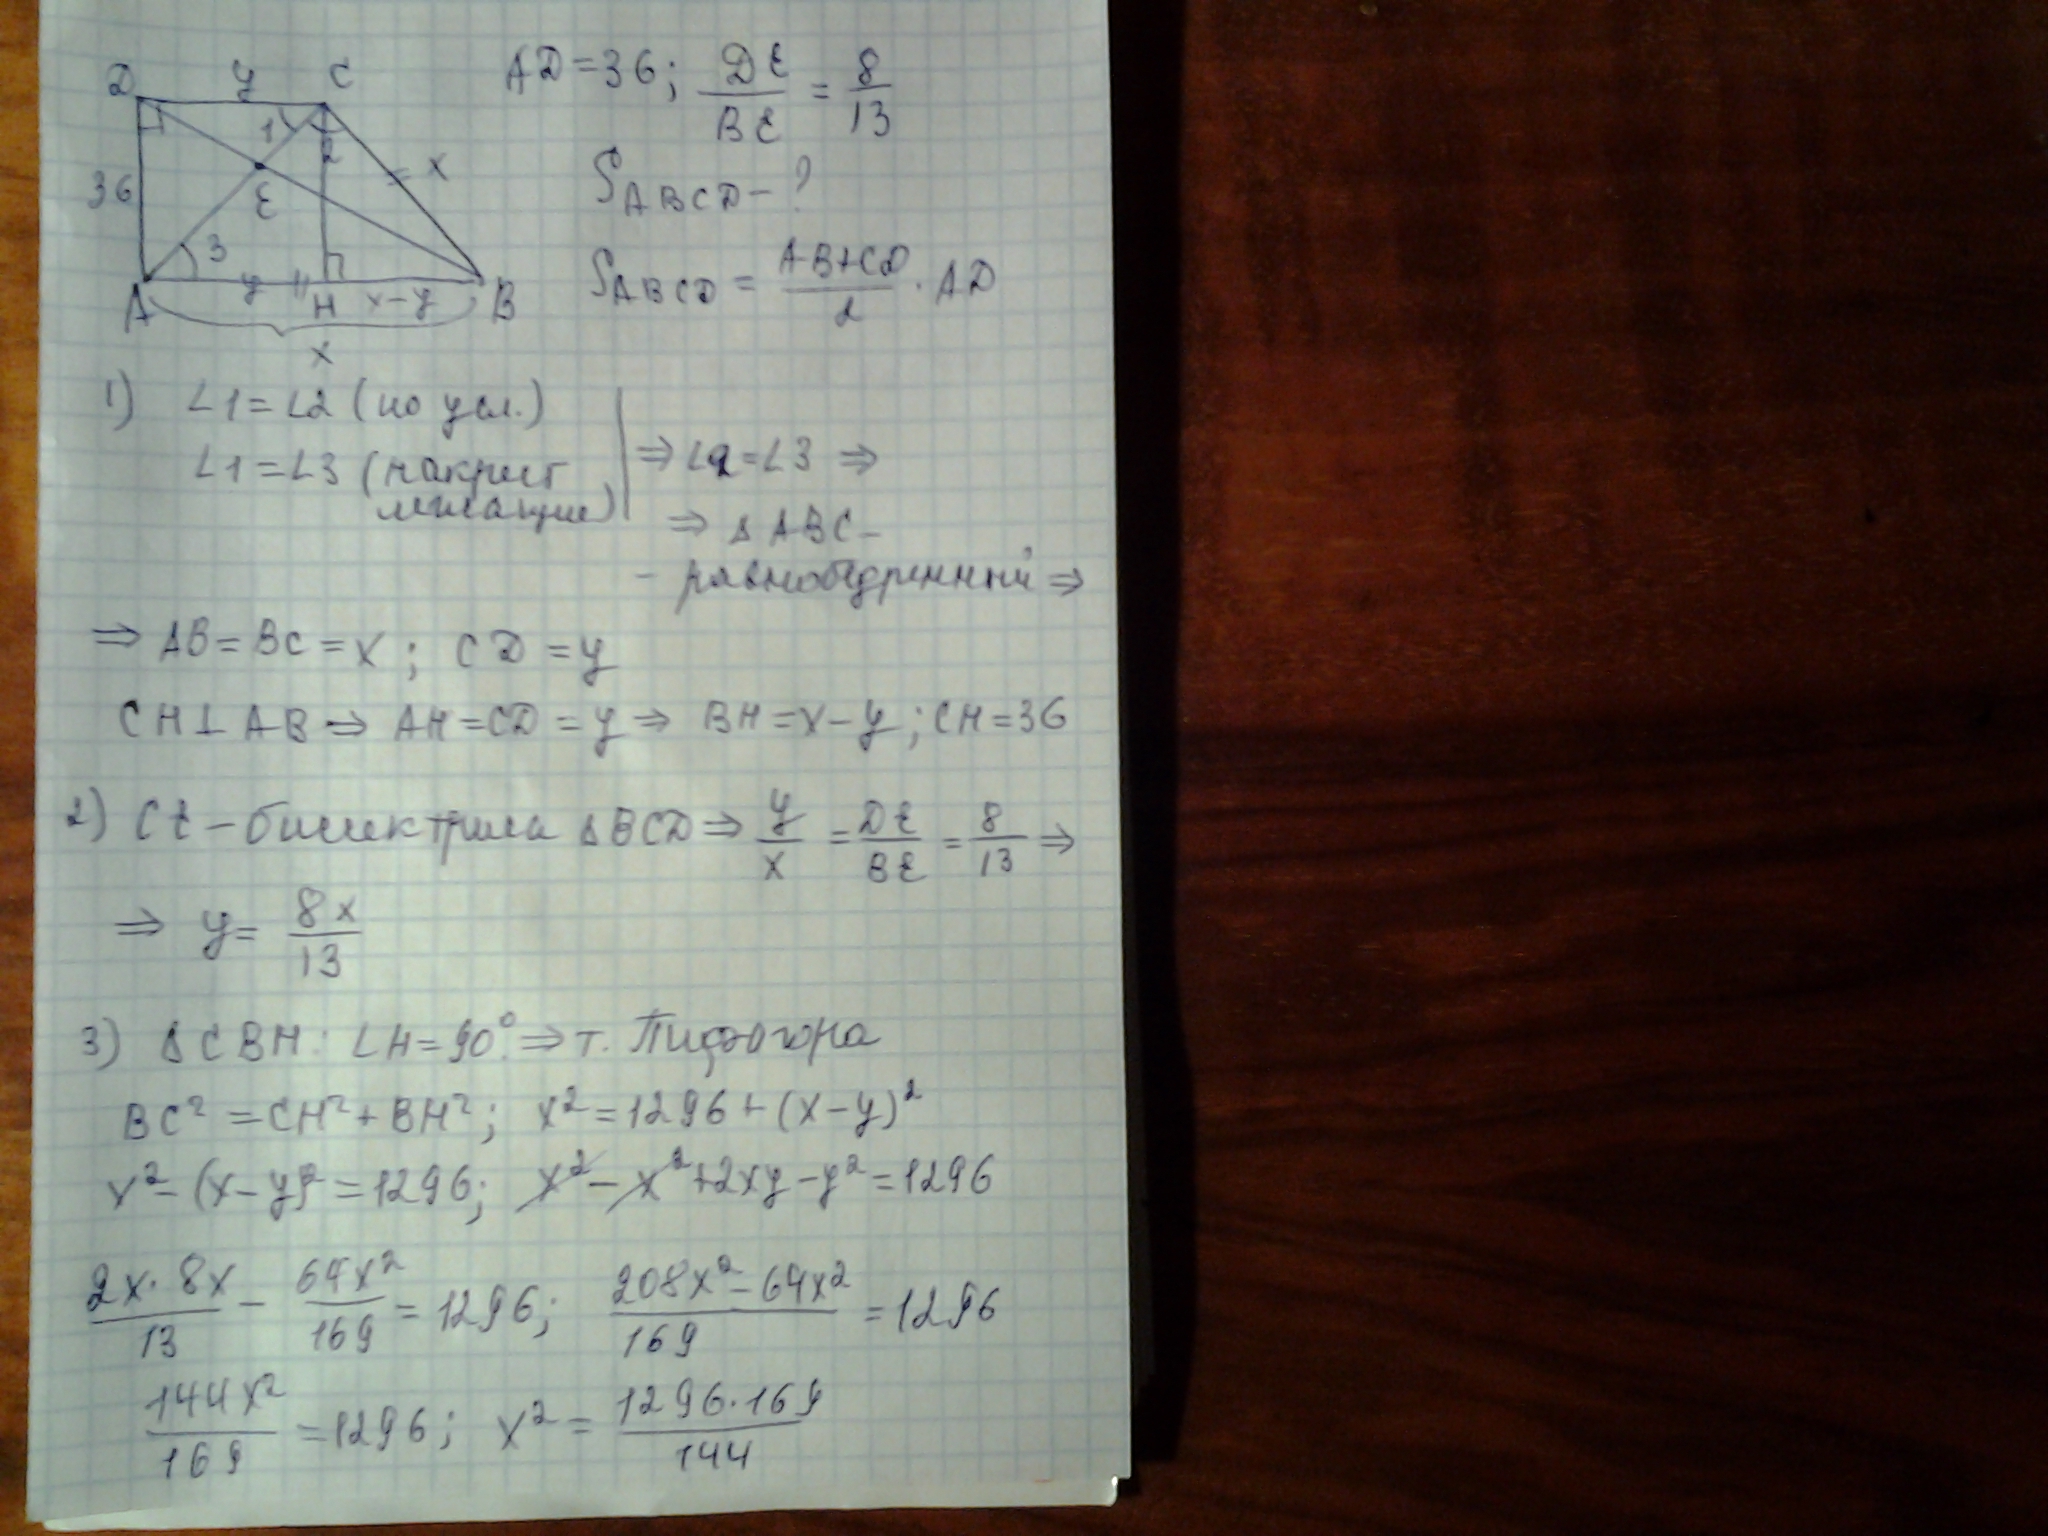 D y C
AD = 36; DE/BE = 8/13
1 2 x
36 E
S ABCD - ?
3
S ABCD = (AB+CD)/2 · AD
A y H x-y B
x
1) ∠1 = ∠2 (по усл.)
∠1 = ∠3 (накрест лежащие) | ⇒ ∠2 = ∠3 ⇒
⇒ Δ ABC -
- равнобедренный ⇒
⇒ AB = BC = x; CD = y
CH ⊥ AB ⇒ AH = CD = y ⇒ BH = x-y; CH = 36
2) CE - биссектриса ΔBCD ⇒ y/x = DE/BE = 8/13 ⇒
⇒ y = 8x/13
3) ΔCBH: ∠H = 90° ⇒ т. Пифагора
BC² = CH² + BH²; x² = 1296 + (x-y)²
x² - (x-y)² = 1296; x² - x² + 2xy - y² = 1296
2x·8x/13 - 64x²/169 = 1296; (208x² - 64x²)/169 = 1296
144x²/169 = 1296; x² = 1296·169/144